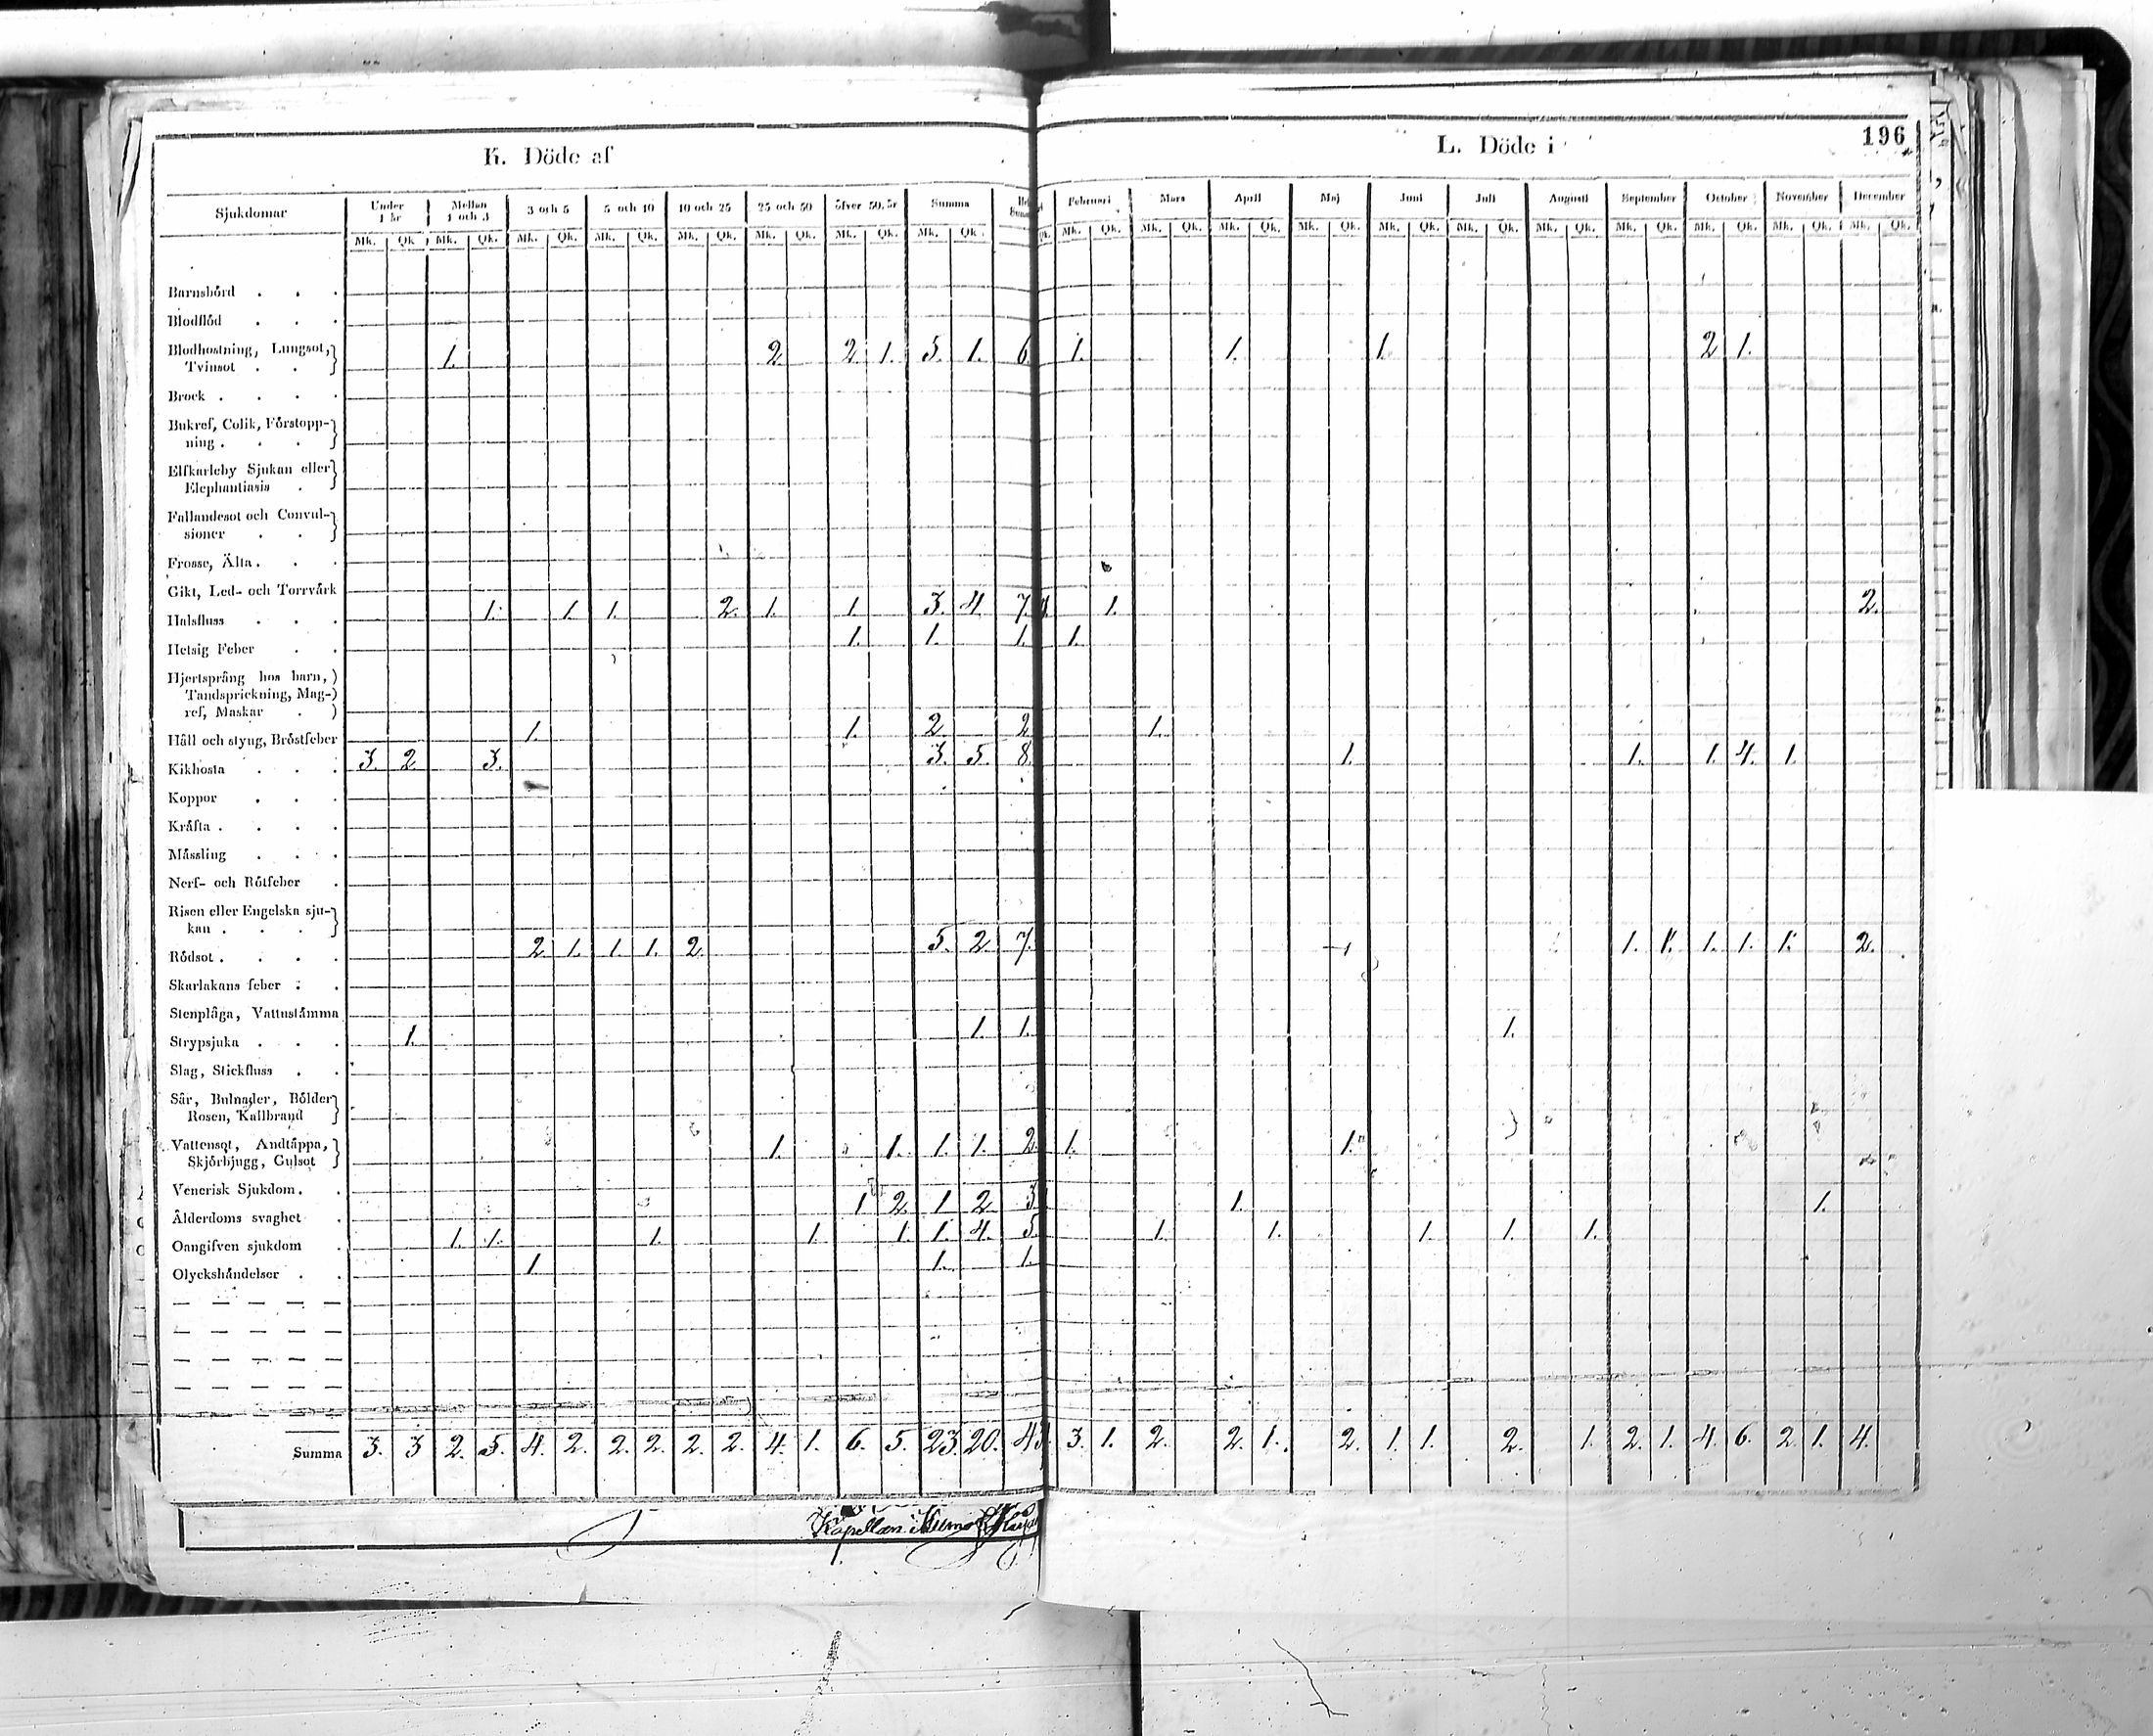 K. Döde af
L. Döde i
196
Sjukdomar Under 1 år Mellan 1 och 3 3 och 5 5 och 10 10 och 25 25 och 50 öfver 50 år Summa
Februari Mars April Maj Juni Juli Augusti September October November December
Mk. Qk Mk. Qk. Mk. Qk. Mk. Qk. Mk. Qk. Mk. Qk. Mk. Qk. Mk. Qk.
Mk. Qk. Mk. Qk. Mk. Qk. Mk. Qk. Mk. Qk. Mk. Qk. Mk. Qk. Mk. Qk. Mk. Qk. Mk. Qk. Mk. Qk.
Barnsbörd . . .
Blodflöd . . .
Blodhostning, Lungsot,
Tvinsot . . 1. 2 2 1. 5. 1. 6. 1. 1. 1. 2 1.
Brock . . . .
Bukref, Colik, Förstopp-
ning . . .
Elfkarleby Sjukan eller
Elephantiasis .
Fallandesot och Convul-
sioner . .
Frosse, Älta . . .
Gikt, Led- och Torrvärk
Halsfluss . . . 1. 1. 1. 2. 1. 1. 3. 4. 7. 1. 2.
Hetsig Feber . . 1. 1. 1. 1.
Hjertsprång hos barn,
Tandsprickning, Mag-
ref, Maskar .
Håll och styng, Bröstfeber 1. 1. 2 2 1.
Kikhosta . . . 3. 2 3. 3. 5. 8. 1. 1. 1. 4. 1.
Koppor . . .
Kräfta . . . .
Mässling . . .
Nerf- och Rötfeber .
Risen eller Engelska sju-
kan . . .
Rödsot . . . . 2 1. 1. 1. 2. 5. 2 7. 1 1. 1. 1. 1. 1. 2.
Skarlakans feber . .
Stenplåga, Vattustämma
Strypsjuka . . . 1. 1. 1. 1.
Slag, Stickfluss . .
Sår, Bulnader, Bölder
Rosen, Kallbrand
Vattensot, Andtäppa,
Skjörbjugg, Gulsot 1. 1. 1. 1. 2. 1. 1.
Venerisk Sjukdom . .
Ålderdoms svaghet . 1 2 1 2 3 1. 1.
Oangifven sjukdom . 1. 1. 1. 1. 1 1. 4. 5. 1. 1. 1. 1. 1.
Olyckshändelser . . 1. 1. 1.
Summa 3. 3 2. 5. 4. 2. 2. 2. 2. 2. 4. 1. 6. 5. 23. 20. 43. 3. 1. 2. 2. 1. 2. 1. 1. 2. 1. 2. 1. 4. 6. 2. 1. 4.
Kapellan i